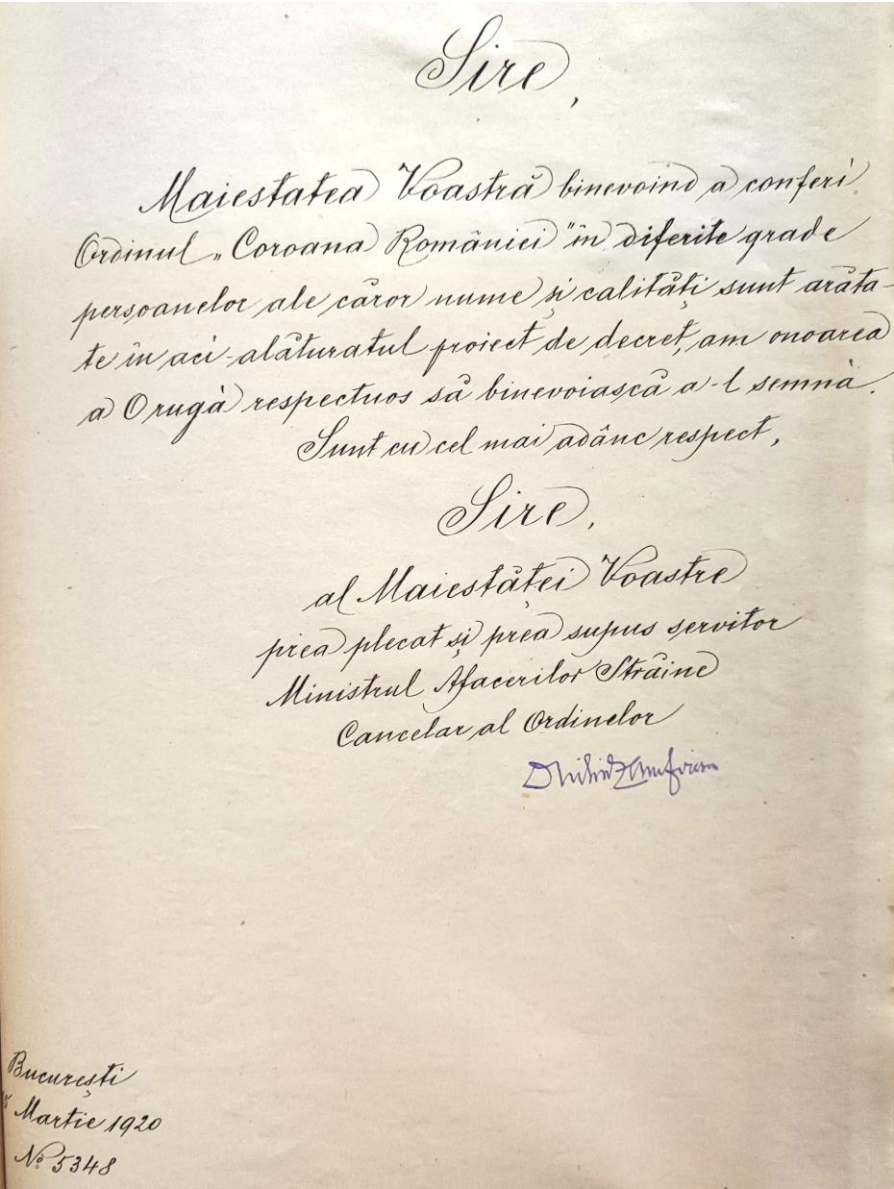 Sire,
Maiestatea Voastră binevoind a conferi
Ordinul „Coroana României” în diferite grade
persoanelor ale căror nume și calități sunt arăta-
te în aci-alăturatul proiect de decret, am onoarea
a O rugà respectuos să binevoiască a-l semnà.
Sunt cu cel mai adânc respect,
Sire,
al Maiestăței Voastre
prea plecat și prea supus servitor
Ministrul Afacerilor Străine
Cancelar al Ordinelor
Duiliu Zamfirescu
București
Martie 1920
No. 5348